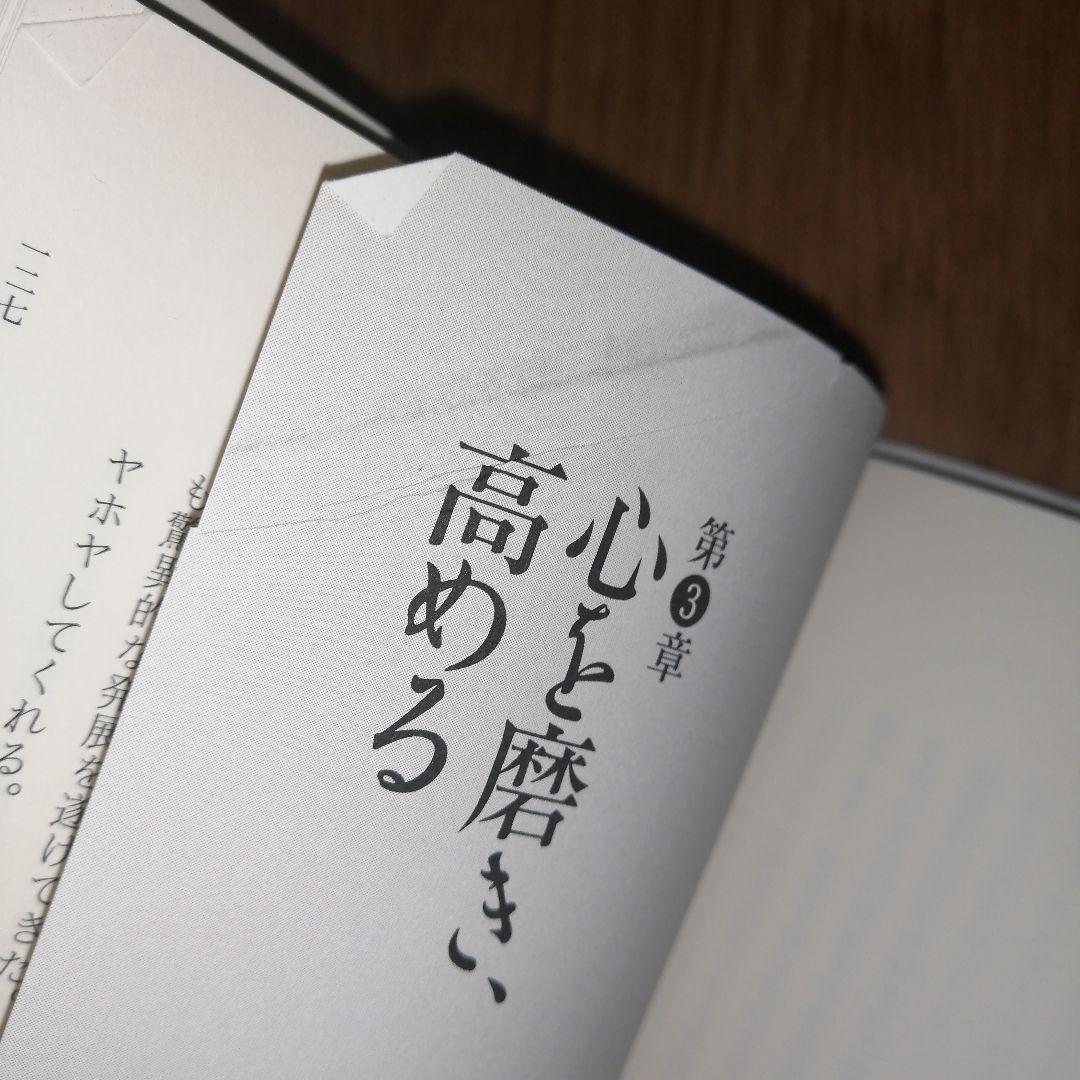 第3章
心を磨き、
高める
も驚異的な発展を遂げてきた。
ヤホヤしてくれる。
一二七